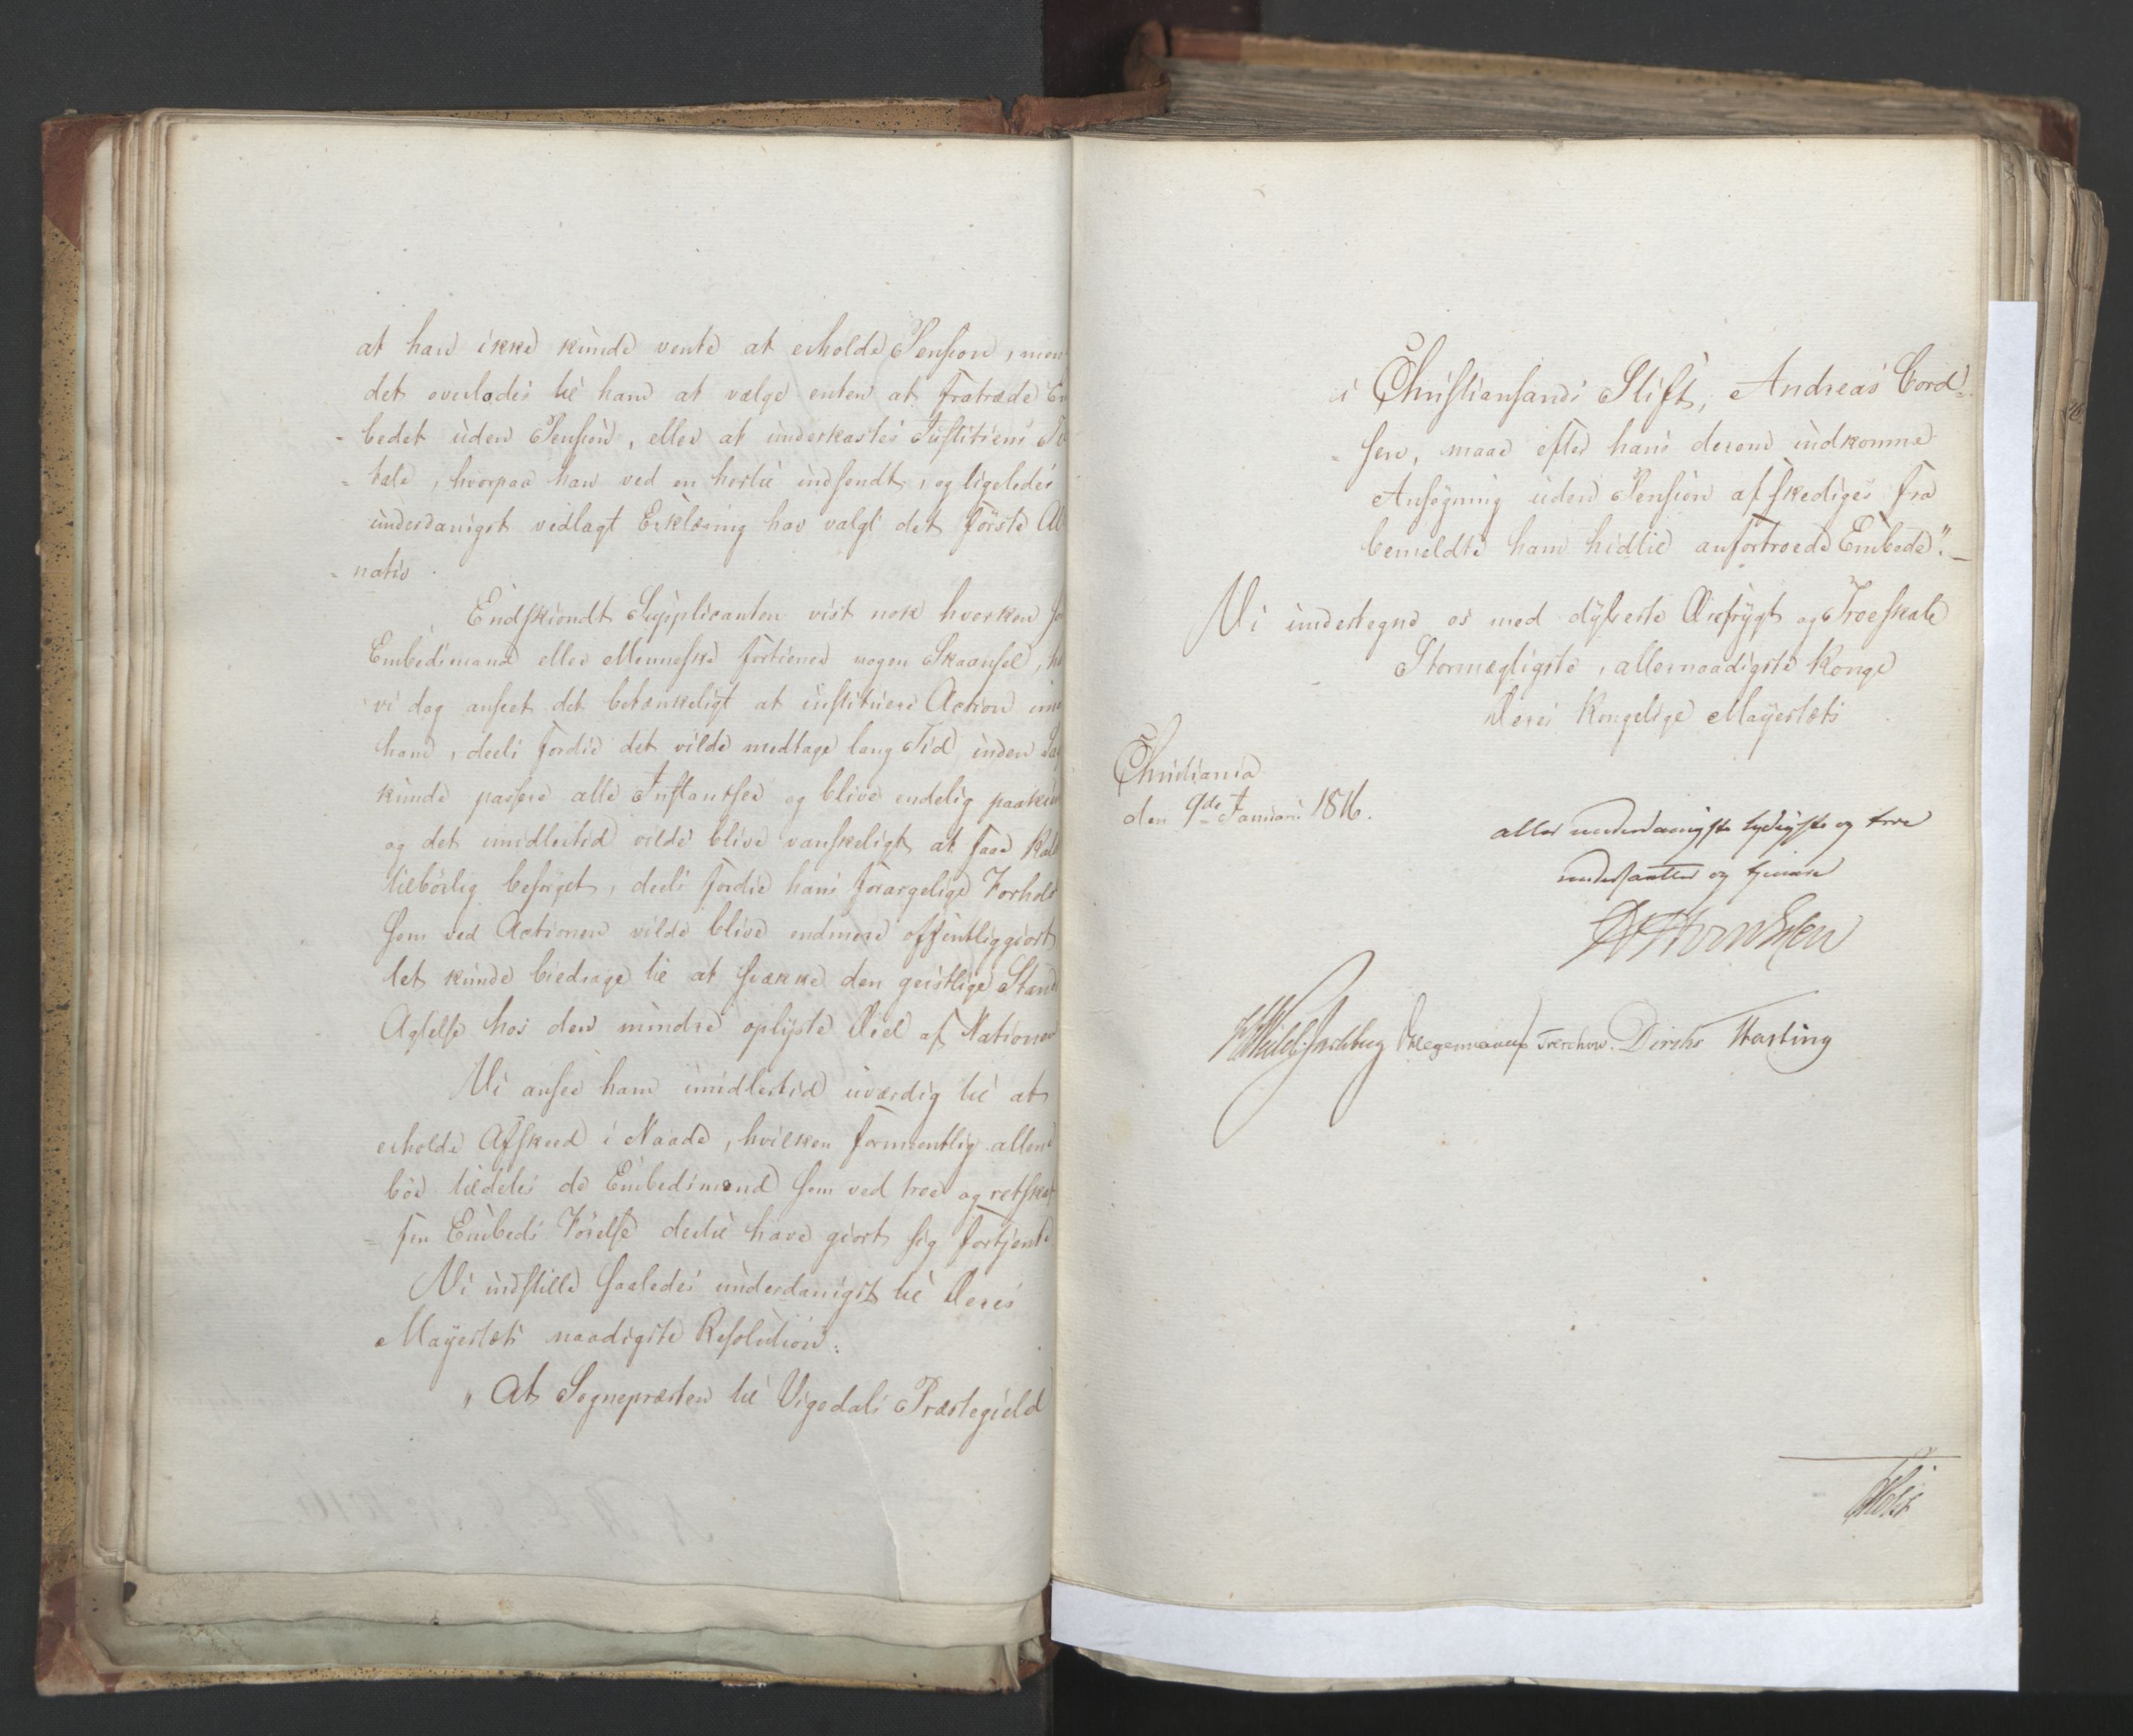 at han ikke kunde vente at erholde Pension, men
det overlodes til ham at vælge enten at fratræde
bedet uden Pension, eller at underkastes Justitiens
tale, hvorpaa han ved en hertil indsendt, og ligeledes
underdanigst vedlagt Erklæring har valgt det første
nativ.
Endskiøndt Supplicanten vist nok hverken
Embedsmand eller Menneske fortiener nogen Skaansel,
vi dog anseet det betænkeligt at instituere Action
ham, deels fordie det vilde medtage lang Tid, inden
kunde passere alle Instantser og blive endelig
og det imidlertid vilde blive vanskeligt at faae
tilbørlig besørget, deels fordie hans forargelige Forhold
som ved Actionen vilde blive endmere offentliggiort
let kunde biedrage til at svække den geistlige Stand
Agtelse hos den mindre oplyste Deel af Nationen
Vi ansee ham imidlertid uværdig til at
erholde Afskeed i Naade, hvilken formeentlig allene
bør tildeles de Embedsmænd som ved troe og retskaf
fen Embeds Førelse dertil have giort sig fortjente.
Vi indstille saaledes underdanigst til Deres
Mayestæts naadigste Resolution:
"At Sognepræsten til Vigedals Præstegield
i Christiansands Stift, Andreas Cord=
sen, maae efter hans derom indkomne
Ansøgning uden Pension afskediges fra
bemeldte ham hidtil anfortroede Embede". —
Vi undertegne os med dybeste Ærefrygt og Troeskab
Stormægtigste, allernaadigste Konge
Deres Kongelige Mayestæts
Christiania
den 9de Januari 1816.
aller underdanigste lydigste og troe
undersaatter og tienere
Wedel-Jarlsberg Hegermann Treschow. Diriks Hasting
Holst